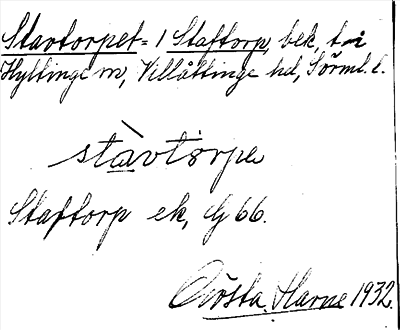 Stavtorpet = 1 Staftorp, bek, t i
Hyltinge sn, Villåttinge hd, Sörml. l.
stàvtorpe
Staftorp ek, G 66.
Gösta Harne 1932.